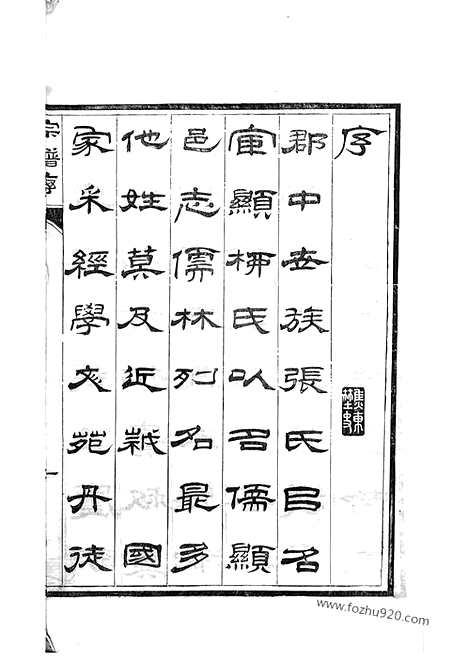 序
郡中世族張氏㠯名
宦顯柳氏以名儒顯
邑志儒林列名最多
他姓莫及近國
家采經學文苑丹徒
宗譜序
一
www.fozhu920.com